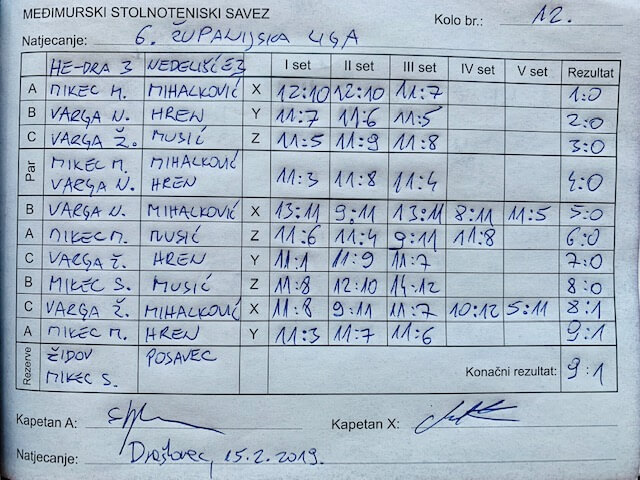 MEĐIMURSKI STOLNOTENISKI SAVEZ Kolo br.: 12.
Natjecanje: 6. ŽUPANIJSKA LIGA
HE-DRA 3 NEDELIŠĆE 3 I set II set III set IV set V set Rezultat
A MIKEC M. MIHALKOVIĆ X 12:10 12:10 11:7 1:0
B VARGA N. HREN Y 11:7 11:6 11:5 2:0
C VARGA Ž. MUSIĆ Z 11:5 11:9 11:8 3:0
Par MIKEC M. MIHALKOVIĆ
VARGA N. HREN 11:3 11:8 11:4 4:0
B VARGA N. MIHALKOVIĆ X 13:11 9:11 13:11 8:11 11:5 5:0
A MIKEC M. MUSIĆ Z 11:6 11:4 9:11 11:8 6:0
C VARGA Ž. HREN Y 11:1 11:9 11:7 7:0
B MIKEC S. MUSIĆ Z 11:8 12:10 14:12 8:0
C VARGA Ž. MIHALKOVIĆ X 11:8 9:11 11:7 10:12 5:11 8:1
A MIKEC M. HREN Y 11:3 11:7 11:6 9:1
Rezerve ŽIDOV POSAVEC
MIKEC S. Konačni rezultat: 9:1
Kapetan A: Kapetan X:
Natjecanje: Draškovec, 15.2.2019.